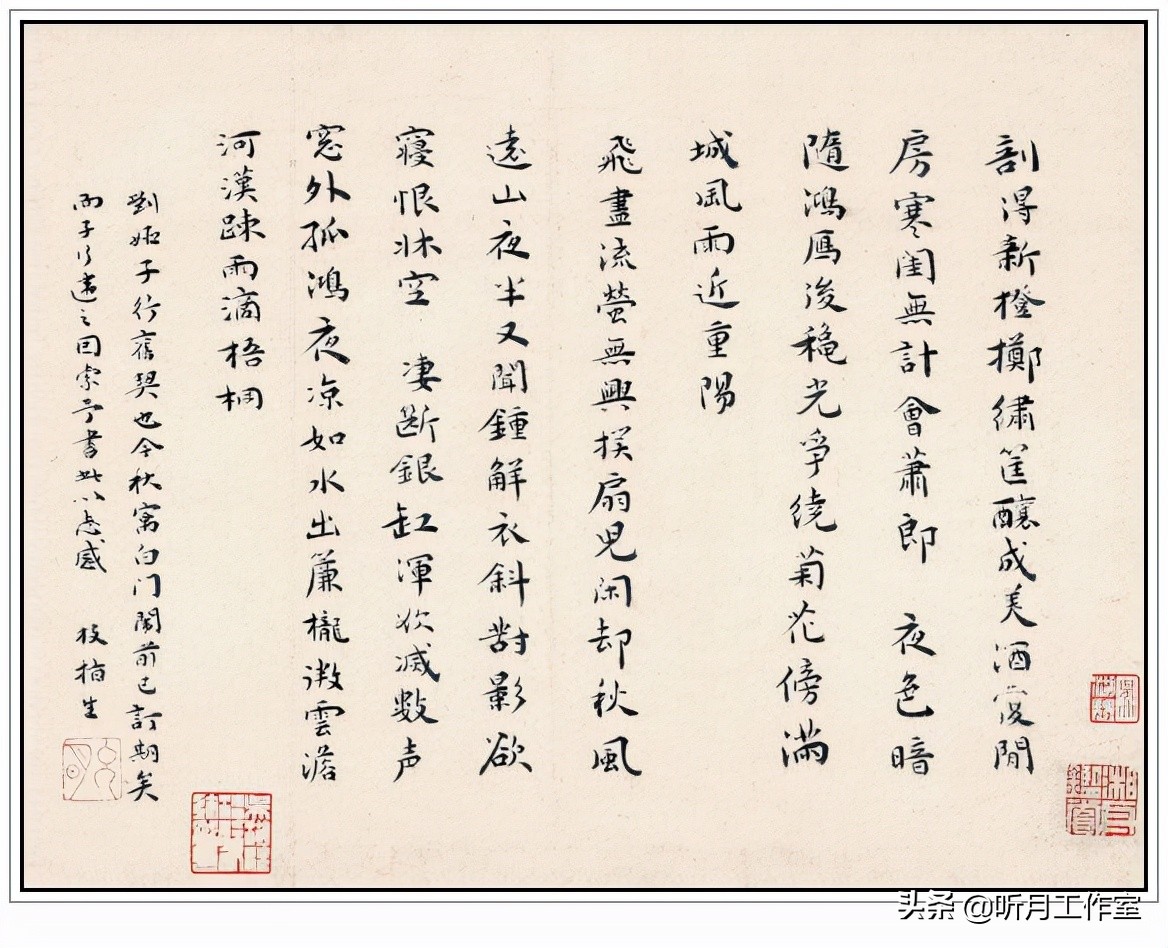 剖得新橙擲繡筐釀成美酒愛閒
房寒閨無計會蕭郎 夜色暗
隨鴻雁後穐光爭繞菊花傍滿
城風雨近重陽
飛盡流螢無興撲扇兒闲却秋風
遠山夜半又聞鍾解衣斜對影欲
寢恨牀空 凄斷銀缸渾欲滅數声
窓外孤鴻夜凉如水出簾櫳微雲澹
河漢踈雨滴梧桐
劉姬子行舊契也今秋寓白门闈前已訂期矣
而子行違之因索予書此以志感 枝栢生
头条 @听月工作室